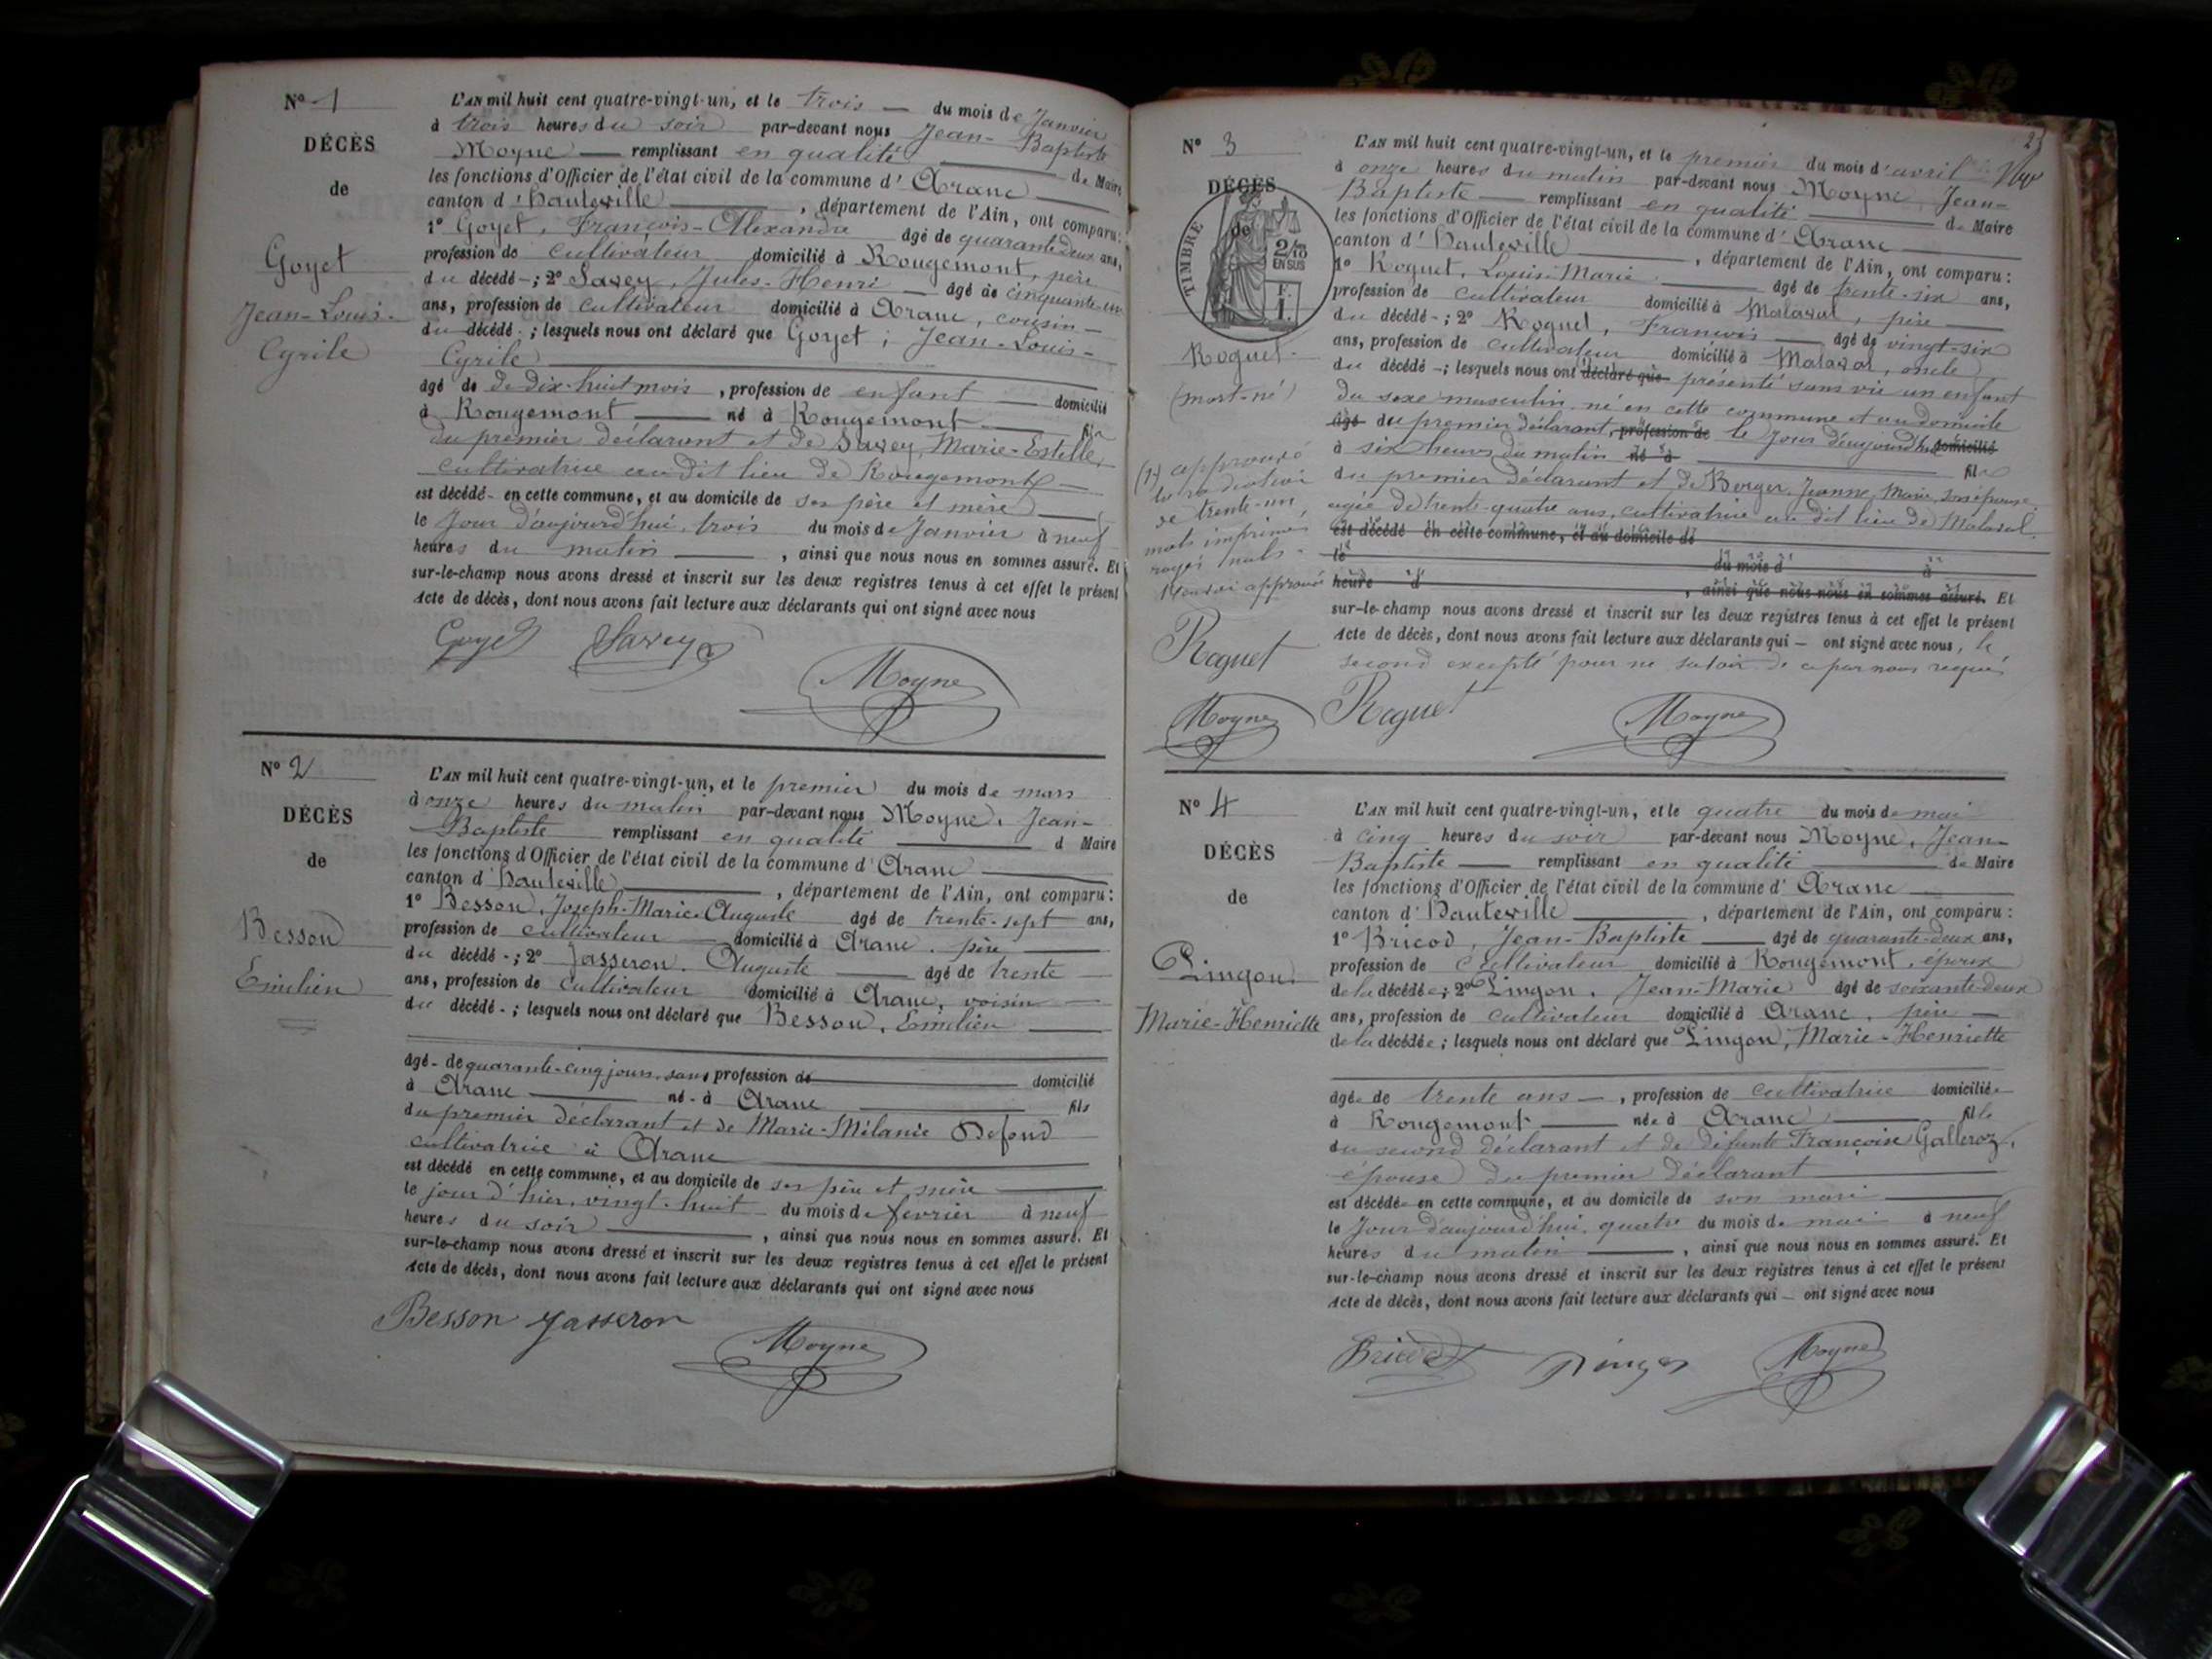 N° 1
DÉCÈS
de
Goyet
Jean-Louis-
Cyrile
L'AN mil huit cent quatre-vingt-un, et le trois — du mois de Janvier
à trois heures du soir par-devant nous Jean-Baptiste
Moyne — remplissant en qualité — de Maire
les fonctions d'Officier de l'état civil de la commune d'Aranc
canton d'hauteville — , département de l'Ain, ont comparu:
1° Goyet, François-Alexandre âgé de quarante deux ans,
profession de cultivateur domicilié à Rougemont, père
du décédé-; 2° Savey, Jules-Henri — âgé de cinquante-un
ans, profession de cultivateur domicilié à Aranc, cousin —
du décédé-; lesquels nous ont déclaré que Goyet; Jean-Louis-
Cyrile
âgé de de dix-huit mois, profession de enfant — domicilié
à Rougemont — né à Rougemont — fils
du premier déclarant et de Savey, Marie-Estelle,
cultivatrice au dit lieu de Rougemont —
est décédé- en cette commune, et au domicile de ses père et mère —
le Jour d'aujourd'hui, trois du mois de Janvier à neuf
heures du matin — , ainsi que nous nous en sommes assuré. Et
sur-le-champ nous avons dressé et inscrit sur les deux registres tenus à cet effet le présent
Acte de décès, dont nous avons fait lecture aux déclarants qui ont signé avec nous
Goyet Savey Moyne
N° 2
DÉCÈS
de
Besson
Emilien
L'AN mil huit cent quatre-vingt-un, et le premier du mois de mars
à onze heures du matin par-devant nous Moyne, Jean-
Baptiste remplissant en qualité — d Maire
les fonctions d'Officier de l'état civil de la commune d'Aranc
canton d'hauteville — , département de l'Ain, ont comparu:
1° Besson, Joseph-Marie-Auguste âgé de trente-sept ans,
profession de cultivateur — domicilié à Aranc, père —
du décédé-; 2° Jasseron, Auguste — âgé de trente —
ans, profession de cultivateur domicilié à Aranc, voisin —
du décédé-; lesquels nous ont déclaré que Besson, Emilien —
âgé- de quarante-cinq jours, sans profession de — domicilié
à Aranc — né- à Aranc — fils
du premier déclarant et de Marie-Mélanie Defond
cultivatrice à Aranc
est décédé en cette commune, et au domicile de ses père et mère —
le jour d'hier, vingt-huit du mois de février à neuf
heures du soir — , ainsi que nous nous en sommes assuré. Et
sur-le-champ nous avons dressé et inscrit sur les deux registres tenus à cet effet le présent
Acte de décès, dont nous avons fait lecture aux déclarants qui ont signé avec nous
Besson Jasseron Moyne
N° 3
DÉCÈS
de
TIMBRE
2/10
EN SUS
F.
1.
Roguet-
(mort-né)
(1) approuvé
la radiation
de trente-un,
mots imprimés
rayés nuls-
Roguet
Moyne
L'AN mil huit cent quatre-vingt-un, et le premier du mois d'avril
à onze heures du matin par-devant nous Moyne, Jean-
Baptiste — remplissant en qualité — de Maire
les fonctions d'Officier de l'état civil de la commune d'Aranc —
canton d'hauteville — , département de l'Ain, ont comparu:
1° Roguet, Louis-Marie — âgé de trente-six ans,
profession de cultivateur domicilié à Malaval, père —
du décédé-; 2° Roguet, François — âgé de vingt-six
ans, profession de cultivateur domicilié à Malaval, oncle
du décédé-; lesquels nous ont déclaré que présenté sans vie un enfant
du sexe masculin né en cette commune et au domicile
âgé du premier déclarant, profession de le jour d'aujourd'hui domicilié
à six heures du matin né à — fils
du premier déclarant et de Berger, Jeanne Marie, son épouse
agée de trente-quatre ans, cultivatrice au dit lieu de Malaval.
est décédé en cette commune, et au domicile de
le du mois d à
heure d , ainsi que nous nous en sommes assuré. Et
sur-le-champ nous avons dressé et inscrit sur les deux registres tenus à cet effet le présent
Acte de décès, dont nous avons fait lecture aux déclarants qui — ont signé avec nous, le
second excepté pour ne savoir de ce par nous requis
Roguet Moyne
N° 4
DÉCÈS
de
Lingon
Marie-Henriette
L'AN mil huit cent quatre-vingt-un, et le quatre du mois de mai
à cinq heures du soir par-devant nous Moyne, Jean-
Baptiste — remplissant en qualité — de Maire
les fonctions d'Officier de l'état civil de la commune d'Aranc
canton d'hauteville — , département de l'Ain, ont comparu:
1° Bricod, Jean-Baptiste — âgé de quarante-deux ans,
profession de cultivateur domicilié à Rougemont, époux
de la décédée; 2° Lingon, Jean-Marie âgé de soixante-deux
ans, profession de cultivateur domicilié à Aranc, père —
de la décédée; lesquels nous ont déclaré que Lingon, Marie-Henriette
âgée de trente ans —, profession de cultivatrice domiciliée
à Rougemont — née à Aranc — fille
du second déclarant et de défunte Françoise Galleroz,
épouse du premier déclarant
est décédée en cette commune, et au domicile de son mari —
le Jour d'aujourd'hui, quatre du mois de mai à neuf
heures du matin — , ainsi que nous nous en sommes assuré. Et
sur-le-champ nous avons dressé et inscrit sur les deux registres tenus à cet effet le présent
Acte de décès, dont nous avons fait lecture aux déclarants qui — ont signé avec nous
Bricod Lingon Moyne